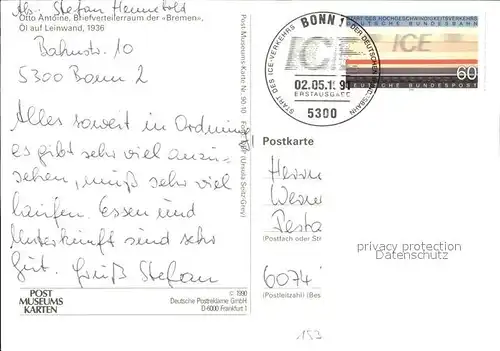 Abs. Stefan
Otto Antoine, Briefverteilerraum der »Bremen«,
Öl auf Leinwand, 1936
Bahnstr. 10
5300 Bonn 2
Alles soweit in Ordnung
es gibt sehr viel anzu-
sehen, muß sehr viel
laufen. Essen und
Unterkunft sind sehr
gut. Gruß Stefan
POST
MUSEUMS
KARTEN
© 1990
Deutsche Postreklame GmbH
D-6000 Frankfurt 1
Post Museums-Karte Nr. 90.10 (Ursula Seitz-Gray)
BONN 1
START DES ICE-VERKEHRS DER DEUTSCHEN BUNDESBAHN
ICE
02.05.1991
ERSTAUSGABE
5300
START DES HOCHGESCHWINDIGKEITSVERKEHRS
DEUTSCHE BUNDESBAHN
ICE
60
DEUTSCHE BUNDESPOST
Postkarte
Herrn
Werner
(Postfach oder Str
privacy protection
Datenschutz
6074
(Postleitzahl) (Bes
153